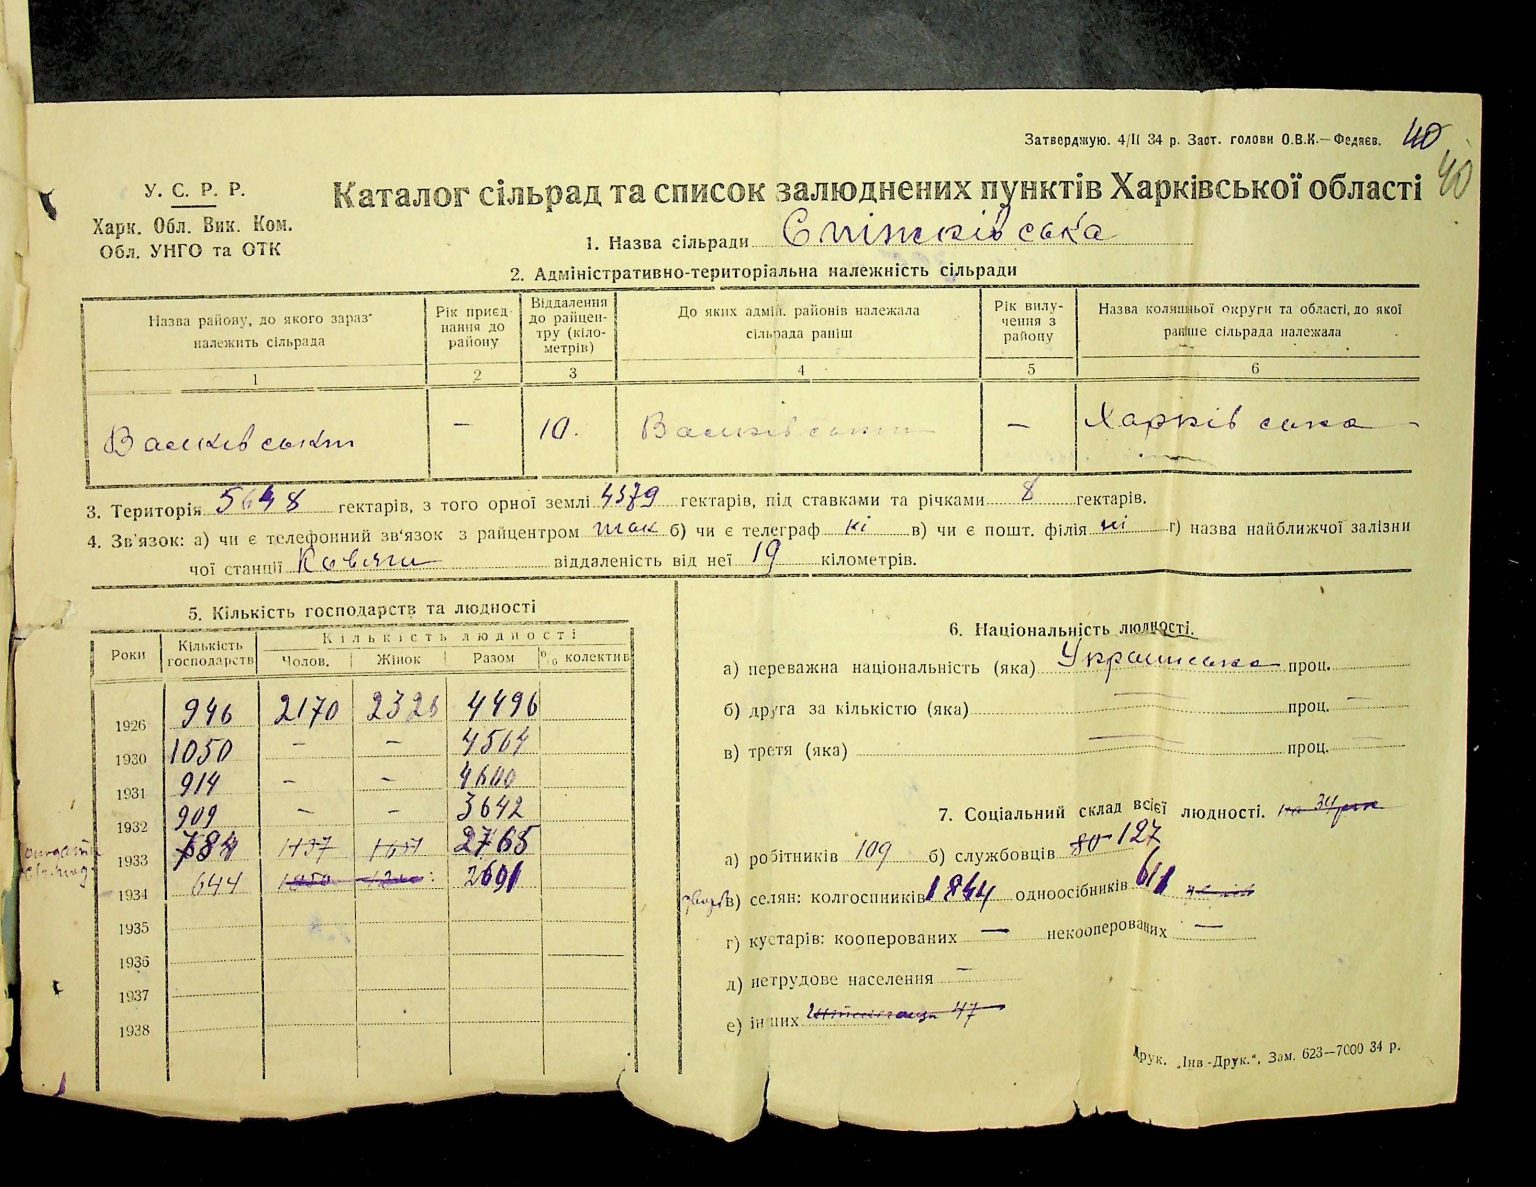 Затверджую. 4/II 34 р. Заст. голови О.В.К.—Федяєв.
40
40
У. С. Р. Р.
Харк. Обл. Вик. Ком.
Обл. УНГО та ОТК
Каталог сільрад та список залюднених пунктів Харківської області
1. Назва сільради Сніжківська
2. Адміністративно-територіальна належність сільради
Назва району, до якого зараз належить сільрада
Рік приєднання до району
Віддалення до райцентру (кілометрів)
До яких адмін. районів належала сільрада раніш
Рік вилучення з району
Назва колишньої округи та області, до якої раніше сільрада належала
1 2 3 4 5 6
Валківський — 10. Валківський — Харківська
3. Територія 5648 гектарів, з того орної землі 4379 гектарів, під ставками та річками 8 гектарів.
4. Зв'язок: а) чи є телефонний зв'язок з райцентром так б) чи є телеграф ні в) чи є пошт. філія ні г) назва найближчої залізни
чої станції Ковяги віддаленість від неї 19 кілометрів.
5. Кількість господарств та людності
Роки Кількість господарств Кількість людності
Чолов. Жінок Разом % колектив
1926 946 2170 2326 4496
1930 1050 – – 4564
1931 914 – – 4600
1932 909 – – 3642
1933 784 2765
1934 644 2691
1935
1936
1937
1938
6. Національність людності.
а) переважна національність (яка) Українська проц.
б) друга за кількістю (яка) — проц. —
в) третя (яка) — проц. —
7. Соціальний склад всієї людності. на 34 рік
а) робітників 109 б) службовців 80 127
в) селян: колгоспників 1844 одноосібників 611
г) кустарів: кооперованих — некооперованих —
д) нетрудове населення —
е) інших 47
Друк. „Інв-Друк.", Зам. 623—7000 34 р.